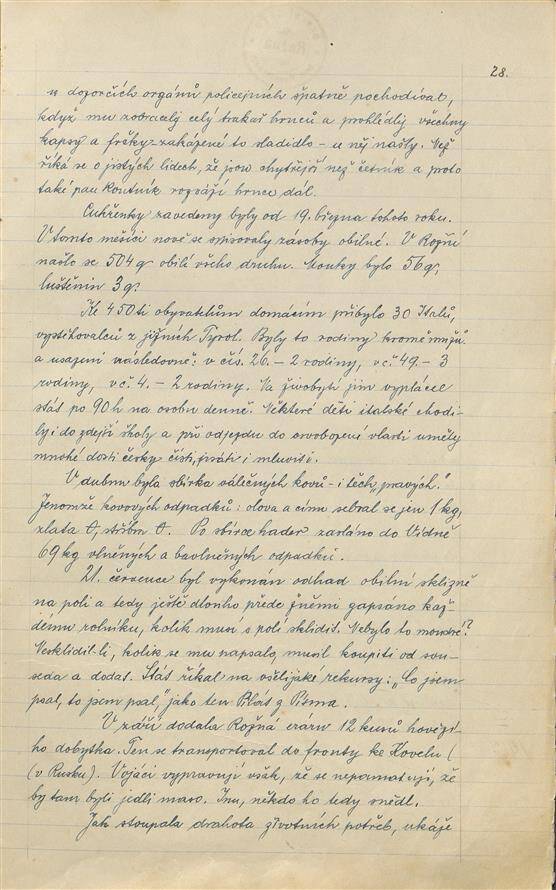 28.
u dozorčích orgánů policejních špatně pochodíval,
když mu zobraceli celý trakař hrnců a prohlédli všechny
kapsy a frčky – zakázené to sladidlo – u něj našly. Než
říká se o jistých lidech, že jsou chytřejší než četník a proto
také pan Koutník rozváží hrnce dál.
Cukřenky zavedeny byly od 19. března tohoto roku.
V tomto měsíci nově se spisovaly zásoby obilné. V Rožné
našlo se 504 q obilí všeho druhu. Mouky bylo 56 q,
luštěnin 3 q.
Ke 450ti obyvatelům domácím přibylo 30 Italů,
vystěhovalců z jižních Tyrol. Byly to rodiny kromě mužů
a usazeni následovně: v čís. 26. – 2 rodiny, v č. 49. – 3
rodiny, v č. 4. – 2 rodiny. Na živobytí jim vyplácel
stát po 90 h na osobu denně. Některé děti italské chodi-
ly i do zdejší školy a při odjezdu do osvobozené vlasti uměly
mnohé dosti česky čísti, psáti i mluviti.
V dubnu byla sbírka válečných kovů – i těch „pravých.“
Jenomže kovových odpadků: olova a cínu sebral se jen 1 kg,
zlata 0, stříbra 0. Po sbírce hader zasláno do Vídně
69 kg vlněných a bavlněných odpadků.
21. července byl vykonán odhad obilní sklizně
na poli a tedy ještě dlouho přede žněmi zapsáno kaž-
dému rolníku, kolik musí s polí skliditi. Nebylo to moudré!?
Nesklidil-li, kolik se mu napsalo, musil koupiti od sou-
seda a dodat. Stát říkal na všelijaké rekursy: „Co jsem
psal, to jsem psal,“ jako ten Pilát z Písma.
V září dodala Rožná eráru 12 kusů hovězí-
ho dobytka. Ten se transportoval do fronty ke Kovelu (
(v Rusku). Vojáci vypravují však, že se nepamatují, že
by tam byli jedli maso. Inu, někdo ho tedy snědl.
Jak stoupala drahota životních potřeb, ukáže